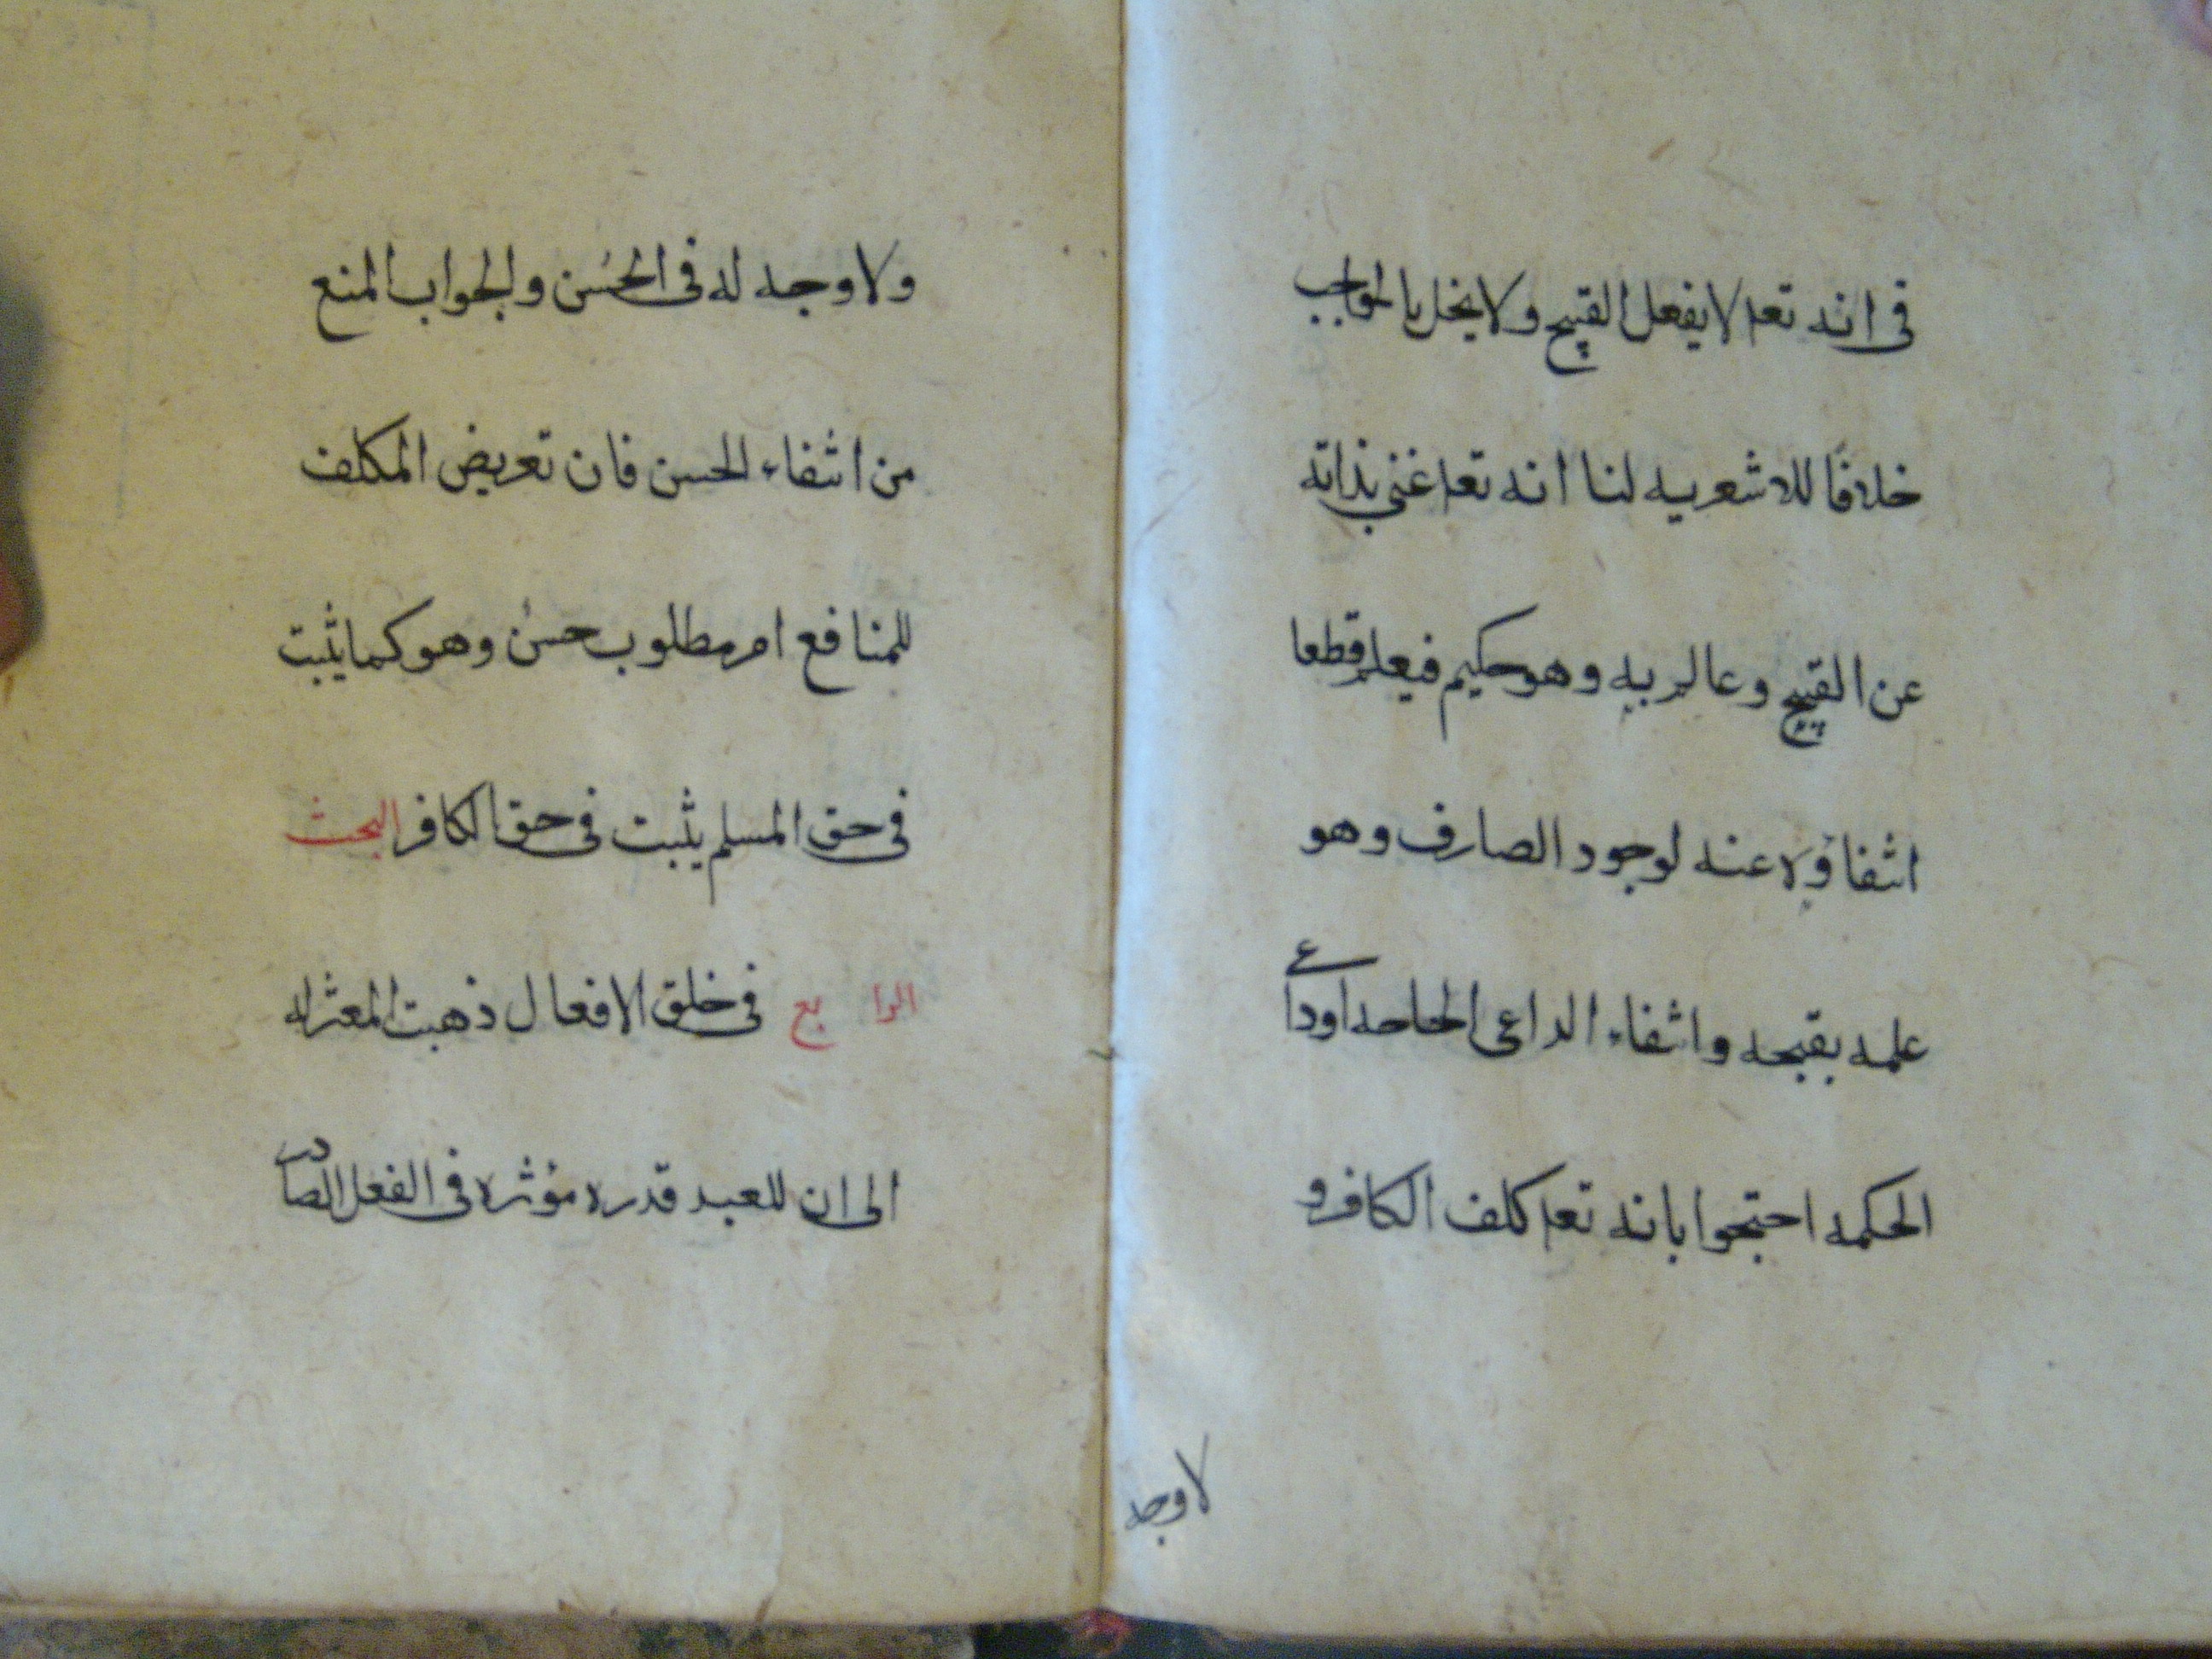 فى انه تعا لا يفعل القبيح ولا يخل بالواجب
خلافًا للاشعريه لنا انه تعا غنى بذاته
عن القبيح وعالم به وهو حكيم فيعلم قطعا
انتفاؤه عنه لوجود الصارف وهو
علمه بقبحه وانتفاء الداعى الحاجه اوداعى
الحكمه احتجوا بانه تعا كلف الكافر و
لا وجه
ولا وجه له فى الحسُن والجواب المنع
من انتفاء الحسن فان تعريض المكلف
للمنافع امر مطلوب حسنُ وهو كما يثبت
فى حق المسلم يثبت فى حق الكافر البحث
الرابع فى خلق الافعال ذهبت المعتزله
الى ان للعبد قدره مؤثره فى الفعل الصادر